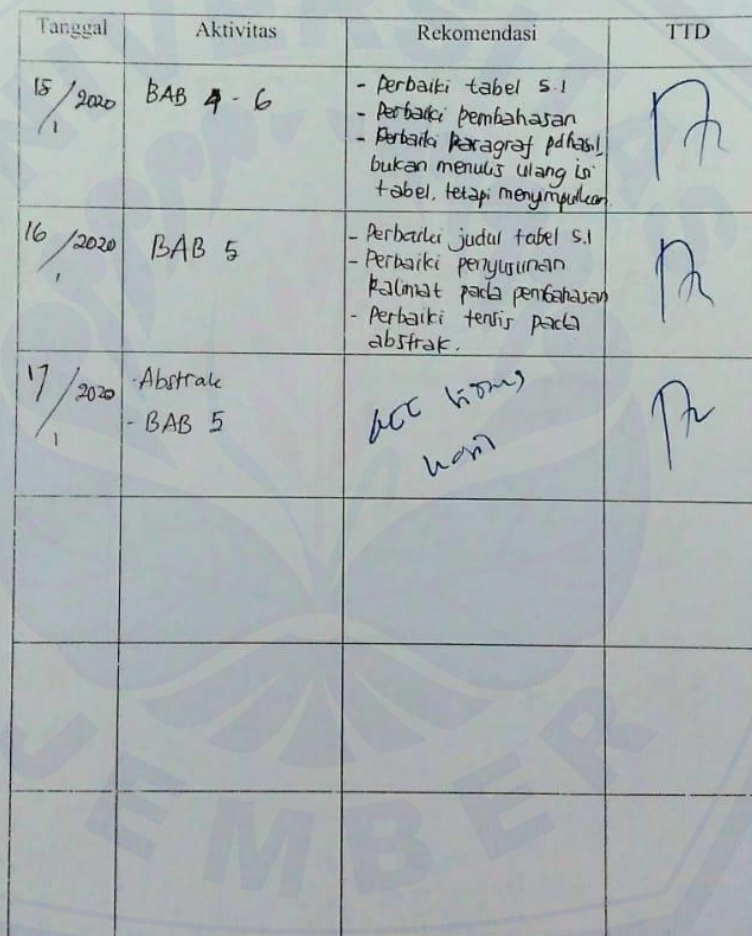 Tanggal Aktivitas Rekomendasi TTD
15/1 2020 BAB 4 - 6
- Perbaiki tabel 5.1
- Perbaiki pembahasan
- Perbaiki Paragraf pd hasil,
bukan menulis ulang isi
tabel, tetapi menyimpulkan.
16/1 2020 BAB 5
- Perbaiki judul tabel 5.1
- Perbaiki penyusunan
kalimat pada pembahasan
- Perbaiki tensis pada
abstrak.
17/1 2020
- Abstrak
- BAB 5
ACC
hasil
UNIVERSITAS
JEMBER